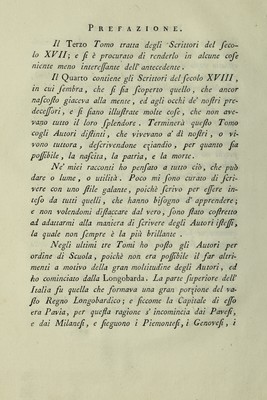 PREFAZIONE.
Il Terzo Tomo tratta degli Scrittori del seco-
lo XVII; e si è procurato di renderlo in alcune cose
niente meno interessante dell'antecedente.
Il Quarto contiene gli Scrittori del secolo XVIII,
in cui sembra, che si sia scoperto quello, che ancor
nascosto giaceva alla mente, ed agli occhi de' nostri pre-
decessori, e si siano illustrate molte cose, che non ave-
vano tutto il loro splendore. Terminerà questo Tomo
cogli Autori distinti, che vivevano a' dì nostri, o vi-
vono tuttora, descrivendone eziandio, per quanto sia
possibile, la nascita, la patria, e la morte.
Ne' miei racconti ho pensato a tutto ciò, che può
dare o lume, o utilità. Poco mi sono curato di scri-
vere con uno stile galante, poichè scrivo per essere in-
teso da tutti quelli, che hanno bisogno d' apprendere;
e non volendomi distaccare dal vero, sono stato costretto
ad adattarmi alla maniera di scrivere degli Autori istessi,
la quale non sempre è la più brillante.
Negli ultimi tre Tomi ho posto gli Autori per
ordine di Scuola, poichè non era possibile il far altri-
menti a motivo della gran moltitudine degli Autori, ed
ho cominciato dalla Longobarda. La parte superiore dell'
Italia fu quella che formava una gran porzione del va-
sto Regno Longobardico; e siccome la Capitale di esso
era Pavia, per questa ragione s' incomincia dai Pavesi,
e dai Milanesi, e sieguono i Piemontesi, i Genovesi, i